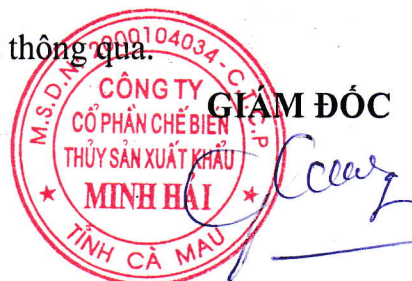 thông qua.
GIÁM ĐỐC
M.S.D.N: 2000104034 - C.T.C.P
CÔNG TY
CỔ PHẦN CHẾ BIẾN
THỦY SẢN XUẤT KHẨU
MINH HẢI
TỈNH CÀ MAU